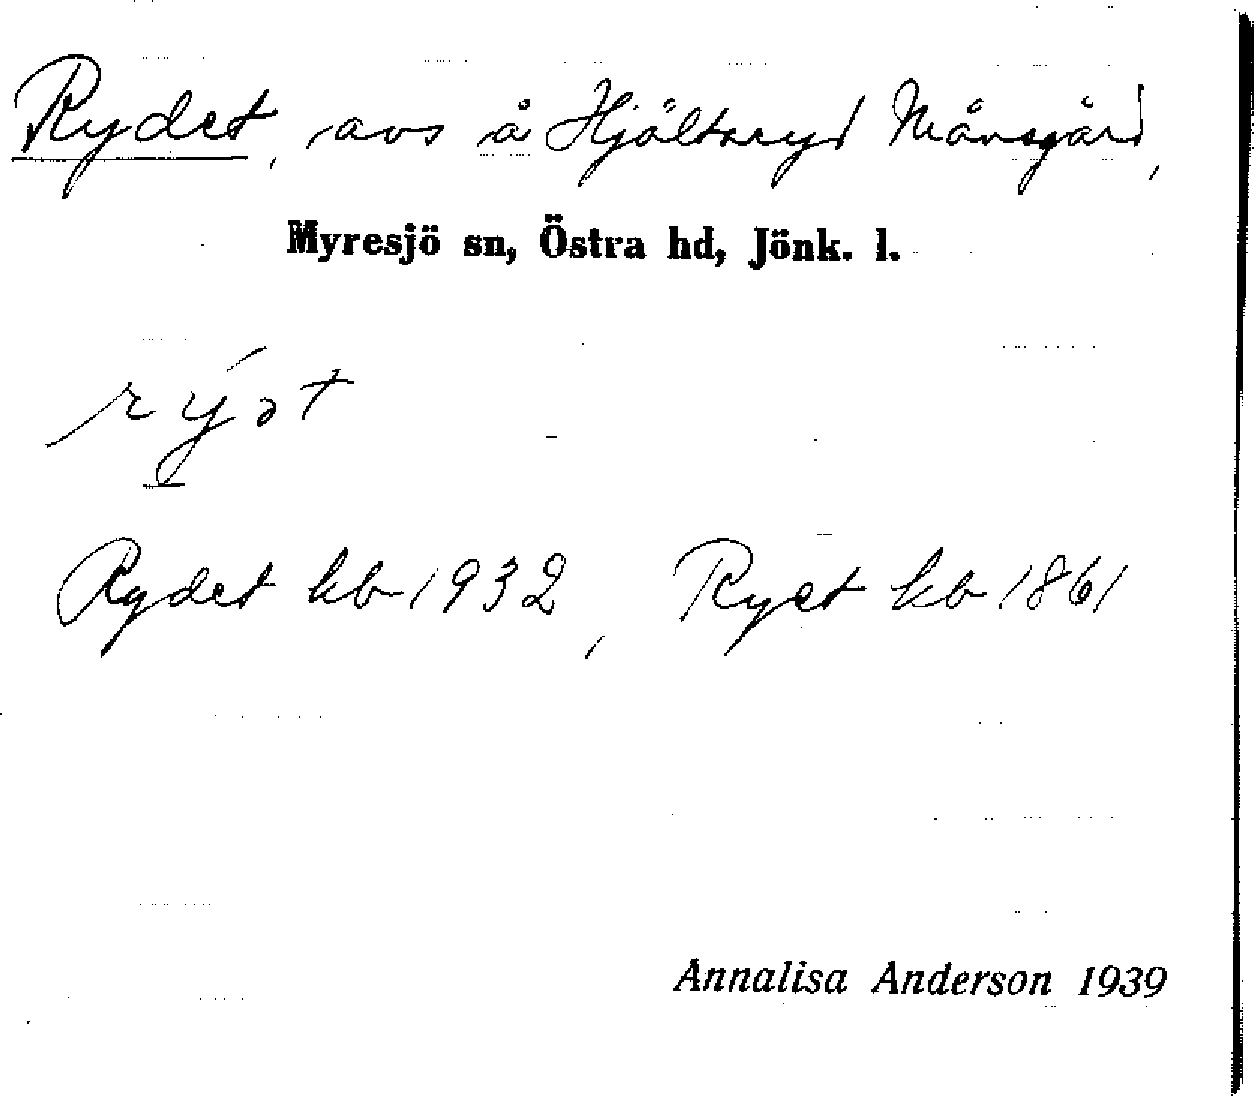 Rydet, avs å Hjältaryd Månsgård,
Myresjö sn, Östra hd, Jönk. l.
rýət
Rydet kb 1932, Ryet kb 1861
Annalisa Anderson 1939